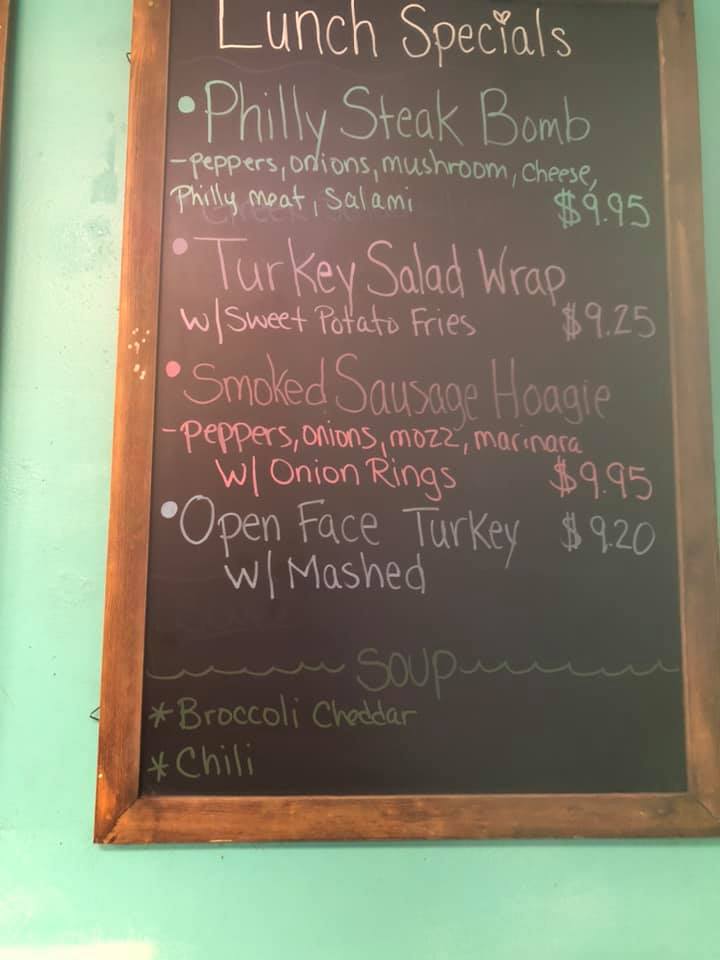 Lunch Specials
• Philly Steak Bomb
-peppers, onions, mushroom, cheese,
Philly meat, Salami $9.95
• Turkey Salad Wrap
w/Sweet Potato Fries $9.25
• Smoked Sausage Hoagie
-peppers, onions, mozz, marinara
w/ Onion Rings $9.95
• Open Face Turkey $9.20
w/ Mashed
Soup
* Broccoli Cheddar
* Chili